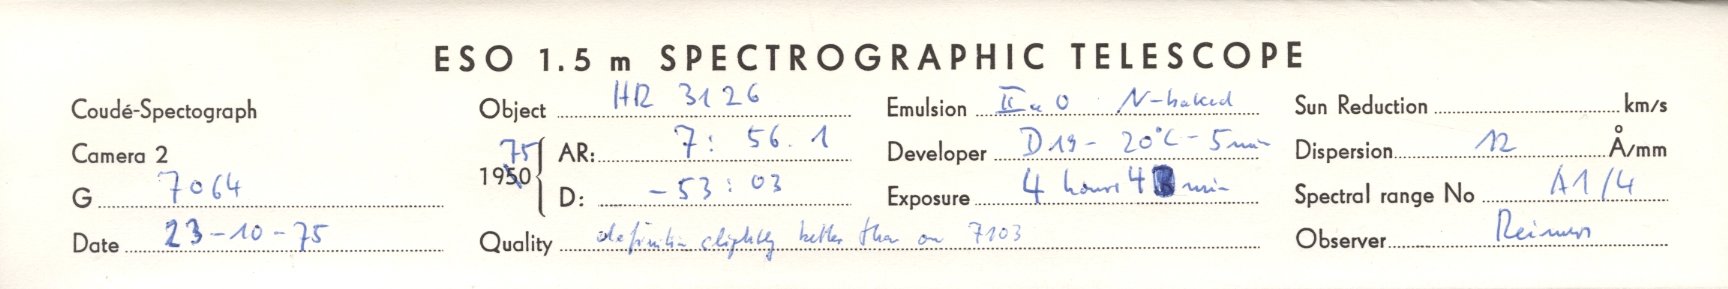 ESO 1.5 m SPECTROGRAPHIC TELESCOPE
Coudé-Spectograph Object HR 3126 Emulsion IIa O N-baked Sun Reduction km/s
Camera 2 75 AR: 7: 56.1 Developer D19 - 20°C - 5 min Dispersion 12 Å/mm
1950
G 7064 D: -53:03 Exposure 4 hours 4 min Spectral range No A1/4
Date 23-10-75 Quality definition slightly better than on 7103 Observer Reimers